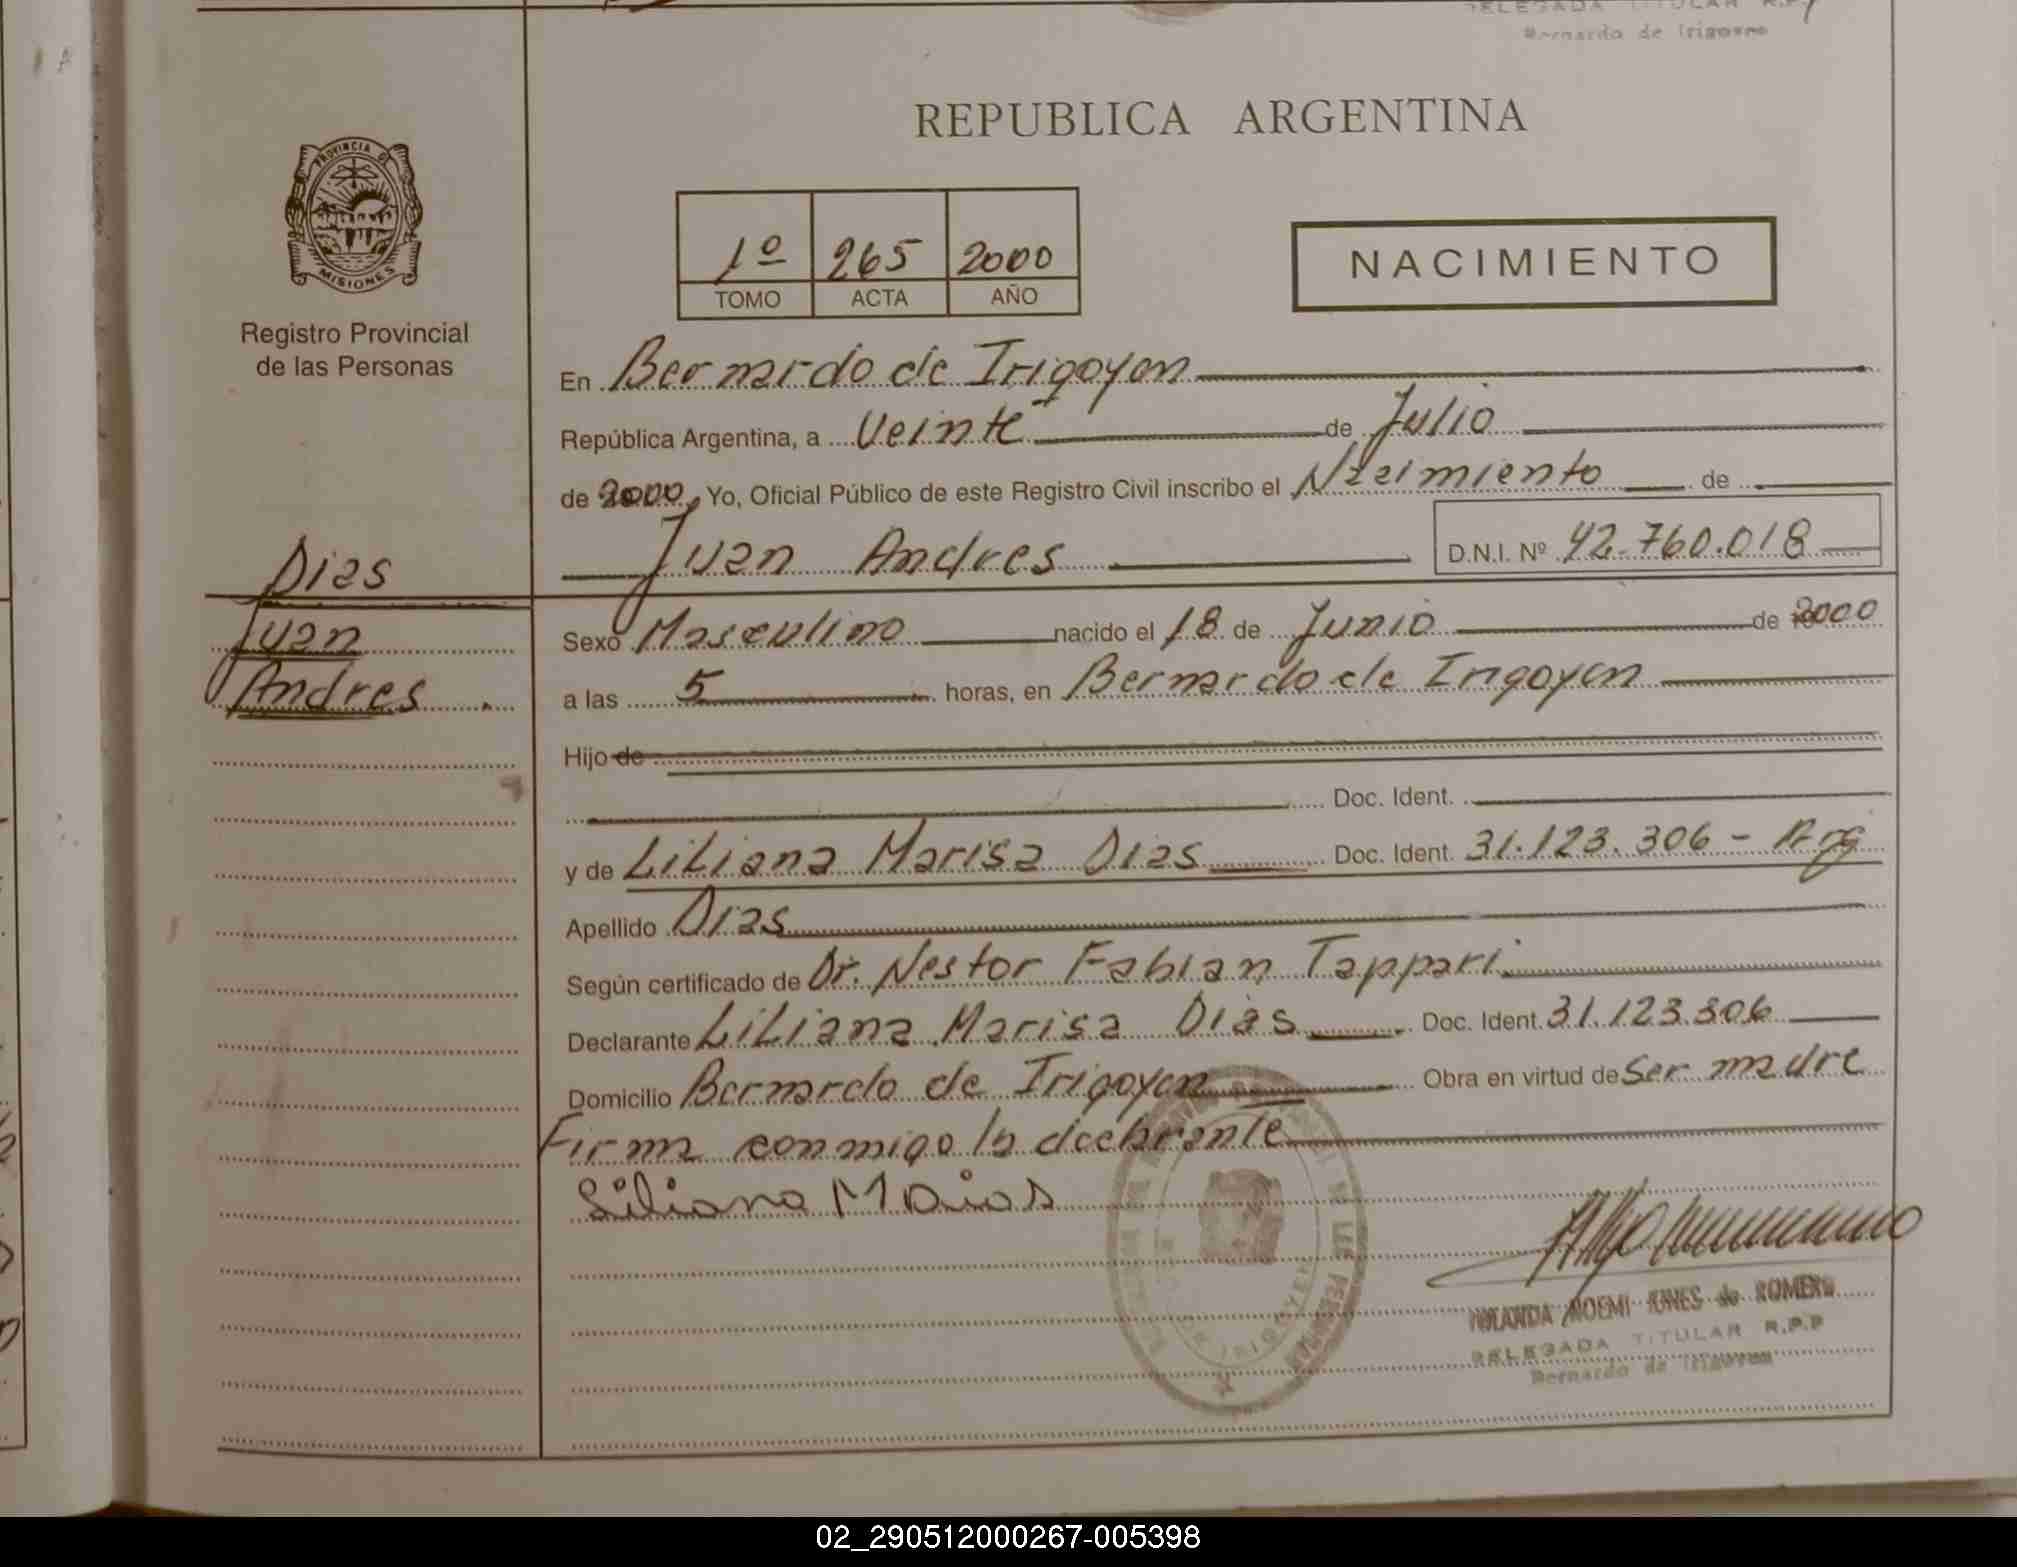 DELEGADA TITULAR R.P.P
Bernardo de Irigoyen
REPUBLICA ARGENTINA
PROVINCIA DE
MISIONES
Registro Provincial
de las Personas
1º 265 2000
TOMO ACTA AÑO
NACIMIENTO
En Bernardo de Irigoyen
República Argentina, a Veinte de Julio
de 2000, Yo, Oficial Público de este Registro Civil inscribo el Nacimiento de
Juan Andres D.N.I. Nº 42.760.018
Dias
Juan
Andres
Sexo Masculino nacido el 18 de Junio de 2000
a las 5 horas, en Bernardo de Irigoyen
Hijo de
Doc. Ident.
y de Liliana Marisa Dias Doc. Ident. 31.123.306 - Arg
Apellido Dias
Según certificado de Dr. Nestor Fabian Tappari
Declarante Liliana Marisa Dias Doc. Ident. 31.123.306
Domicilio Bernardo de Irigoyen Obra en virtud de Ser madre
Firma conmigo la declarante
Liliana M Dias
NOEMI de ROMERO
DELEGADA TITULAR R.P.P
Bernardo de Irigoyen
02_290512000267-005398